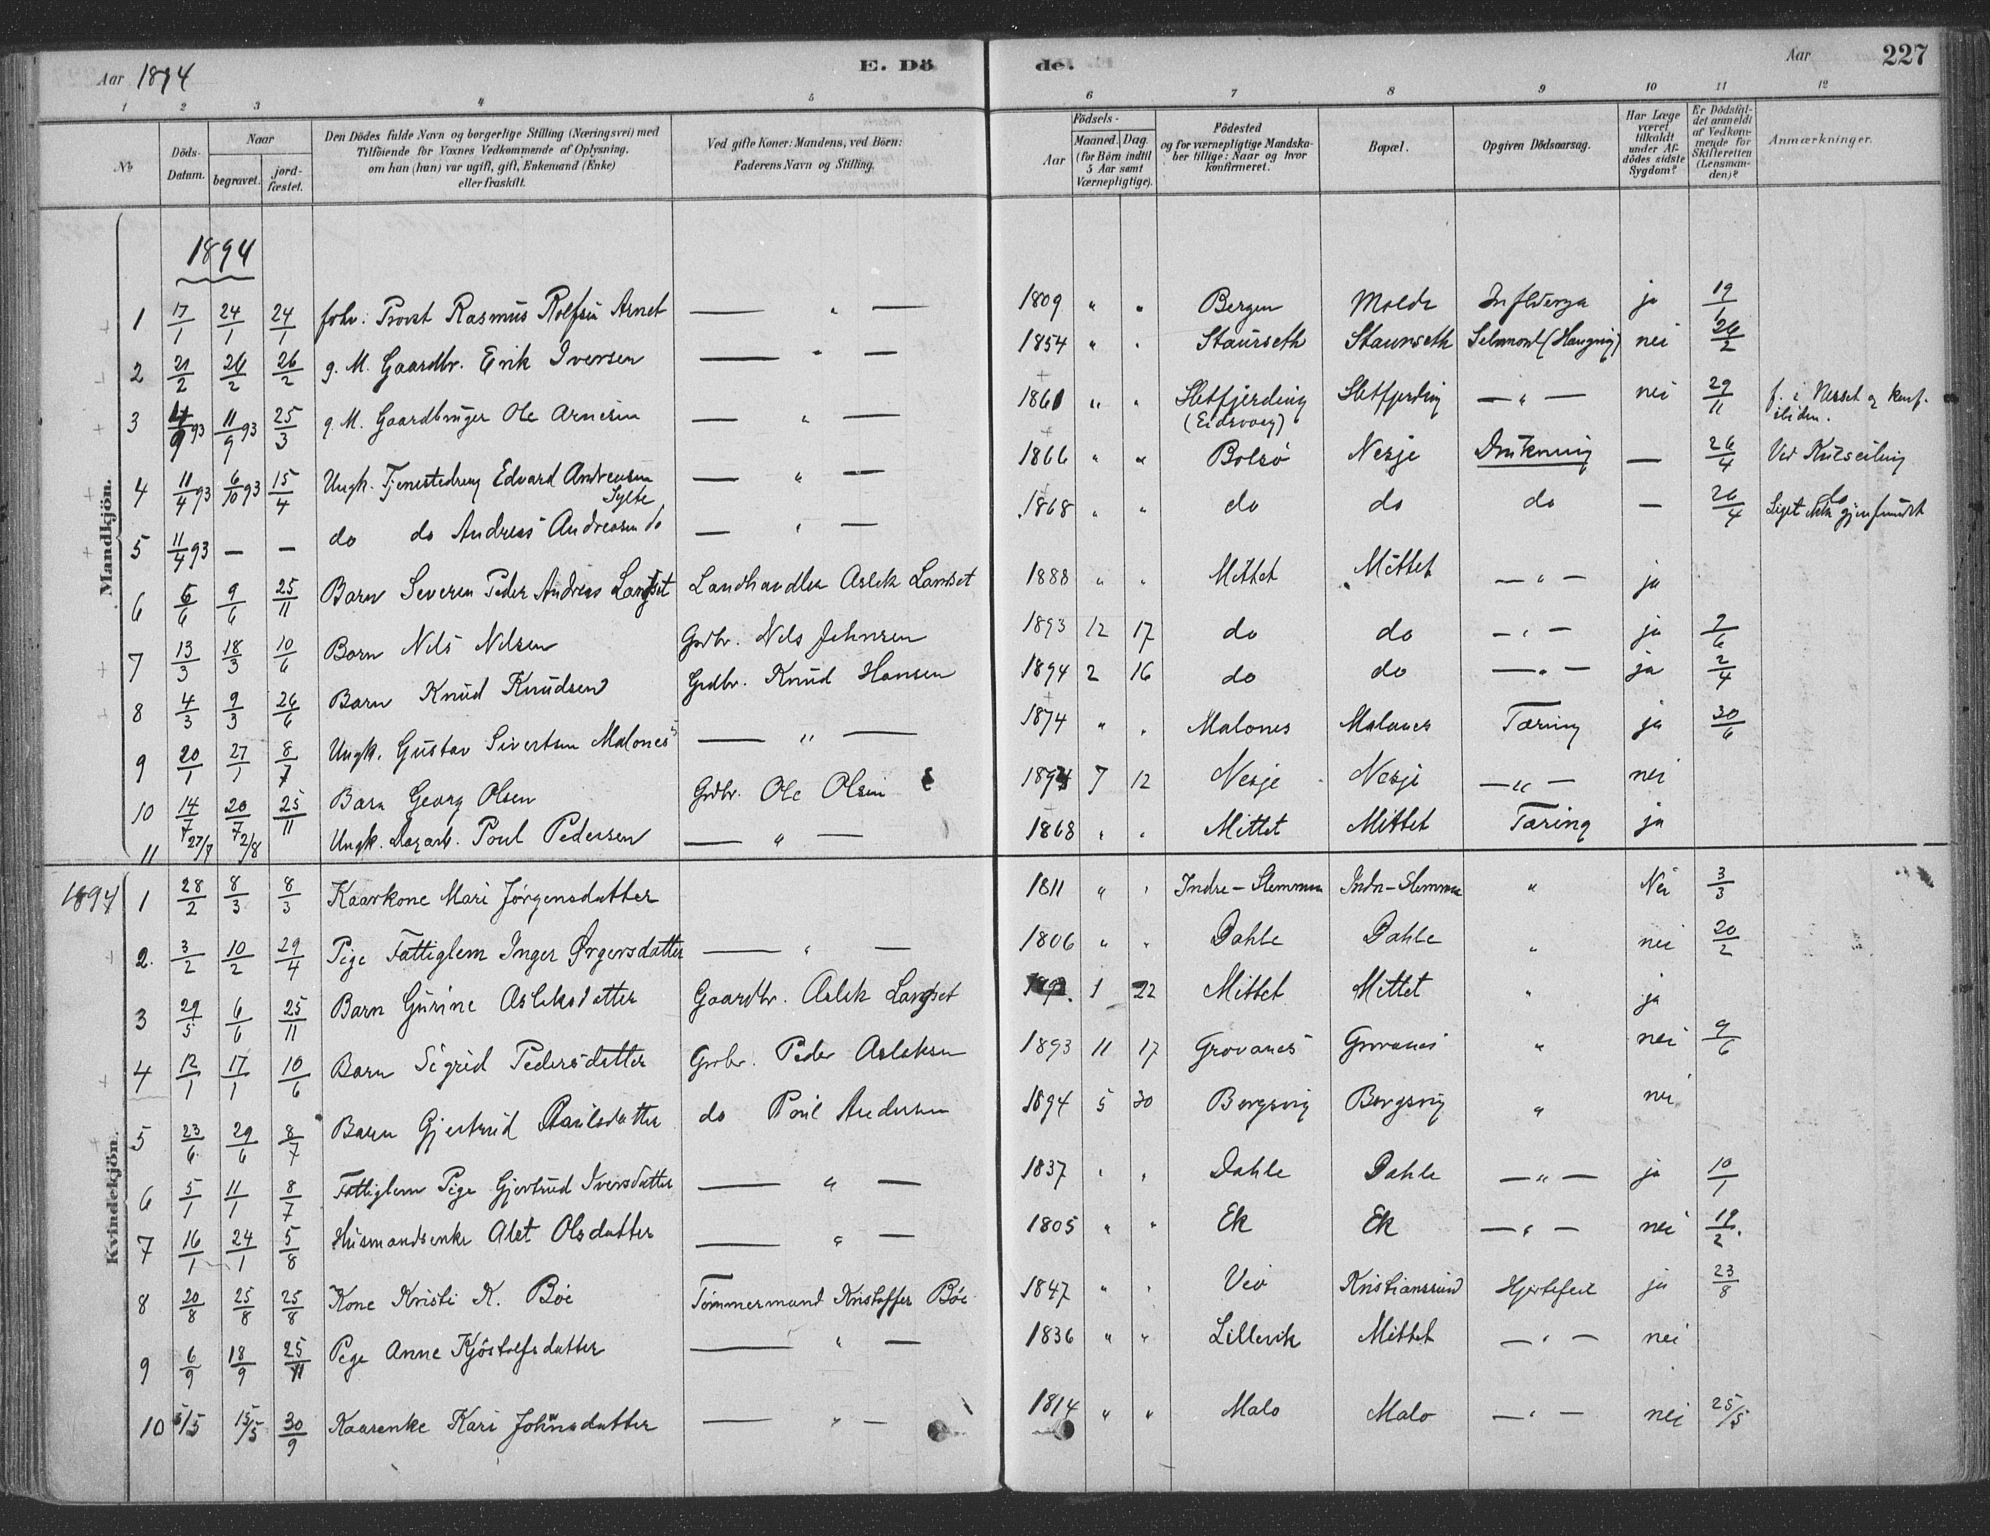 Aar 1894 E. Dö de. Aar 227
1 2 3 4 5 6 7 8 9 10 11 12
No.
Döds-Datum.
Naar
begravet.
jordfæstet.
Den Dödes fulde Navn og borgerlige Stilling (Næringsvei) med
Tilföiende for Voxnes Vedkommende af Oplysning,
om han (hun) var ugift, gift, Enkemand (Enke)
eller fraskilt.
Ved gifte Koner: Mandens, ved Börn:
Faderens Navn og Stilling.
Födsels-
Aar
Maaned. Dag.
(for Börn indtil
5 Aar samt
Værnepligtige).
Födested
og for værnepligtige Mandska-
ber tillige: Naar og hvor
konfirmeret.
Bopæl.
Opgiven Dödsaarsag.
Har Læge
været
tilkaldt
under Af-
dödes sidste
Sygdom?
Er Dödsfal-
det anmeldt
af Vedkom-
mende for
Skifteretten
(Lensman-
den)?
Anmærkninger.
Mandkjön.
1894
1 17/1 24/1 24/1 forhv. Provst Rasmus Rolfsen Arnet — " — 1809 " " Bergen Molde ja 19/1
2 21/2 26/2 26/2 g. M. Gaardbr. Erik Iversen — " — 1854 " " Staurseth Staurseth Selvmord (Hængning) nei 26/2
3 4/9 93 11/9 93 25/3 g. M. Gaardbruger Ole Arnesen — " — 1861 " " Sletfjerding (Eidsvaag) Sletfjerding — " — nei 29/11 f. i Nesset og konf.
4 11/4 93 6/10 93 15/4 Ungk. Tjenestedreng Edvard Andreassen Sylte — " — 1866 " " Bolsö Nesje Drukning — 26/4 Ved Kulseiling
5 11/4 93 — — do do Andreas Andreassen do — " — 1868 " " do do do — 26/4 do Liget ikke gjenfundet
6 6/6 9/6 25/11 Barn Severin Peder Andreas Langset Landhandler Aslak Langset 1888 " " Mittet Mittet — " — ja
7 13/3 18/3 10/6 Barn Nils Nilsen Grdbr. Nils Johnsen 1893 12 17 do do — " — ja 2/6
8 4/3 9/3 26/6 Barn Knud Knudsen Grdbr. Knud Hansen 1894 2 16 do do — " — ja 2/4
9 20/1 27/1 8/7 Ungk. Gustav Sivertsen Malones — " — 1874 " " Malones Malones Tæring ja 30/6
10 14/7 20/7 25/11 Barn Georg Olsen Grdbr. Ole Olsen 1894 7 12 Nesje Nesje — " — nei
11 27/7 2/8 Ungk. Poul Pedersen — " — 1868 " " Mittet Mittet Tæring ja
1894
Kvindekjön.
1 28/2 8/3 8/3 Kaarkone Mari Jørgensdatter 1811 " " Indre-Slemmen Indr-Slemmen " Nei 3/3
2. 3/2 10/2 29/4 Pige Fattiglem Inger Ørgersdatter — " — 1806 " " Dahle Dahle " nei 20/2
3 29/5 6/6 25/11 Barn Gurine Aslaksdatter Gaardbr. Aslak Langset 1 22 Mittet Mittet " ja
4 12/1 17/1 10/6 Barn Sigrid Pedersdatter Grdbr. Peder Aslaksen 1893 11 17 Grovanes Grovanes " nei 9/6
5 23/6 29/6 8/7 Barn Gjertrud Paulsdatter do Poul Andersen 1894 5 30 Bergsvig Bergsvig " nei
6 5/1 11/1 8/7 Fattiglem Pige Gjertrud Iversdatter — " — 1837 " " Dahle Dahle — " — ja 10/1
7 16/1 24/1 5/8 Husmandsenke Alet Olsdatter — " — 1805 " " Ek Ek — " — nei 19/2.
8 20/8 25/8 25/8 Kone Kristi K. Böe Tømmermand Kristoffer Böe 1847 " " Veö Kristianssund Hjertefeil ja 23/8
9 6/9 18/9 25/11 Pige Anne Kjöstolfsdatter — " — 1836 " " Lillevik Mittet — " — nei
10 5/5 15/5 30/9 Kaarenke Kari Johnsdatter — " — 1814 " " Malo Malo — " — nei 25/5